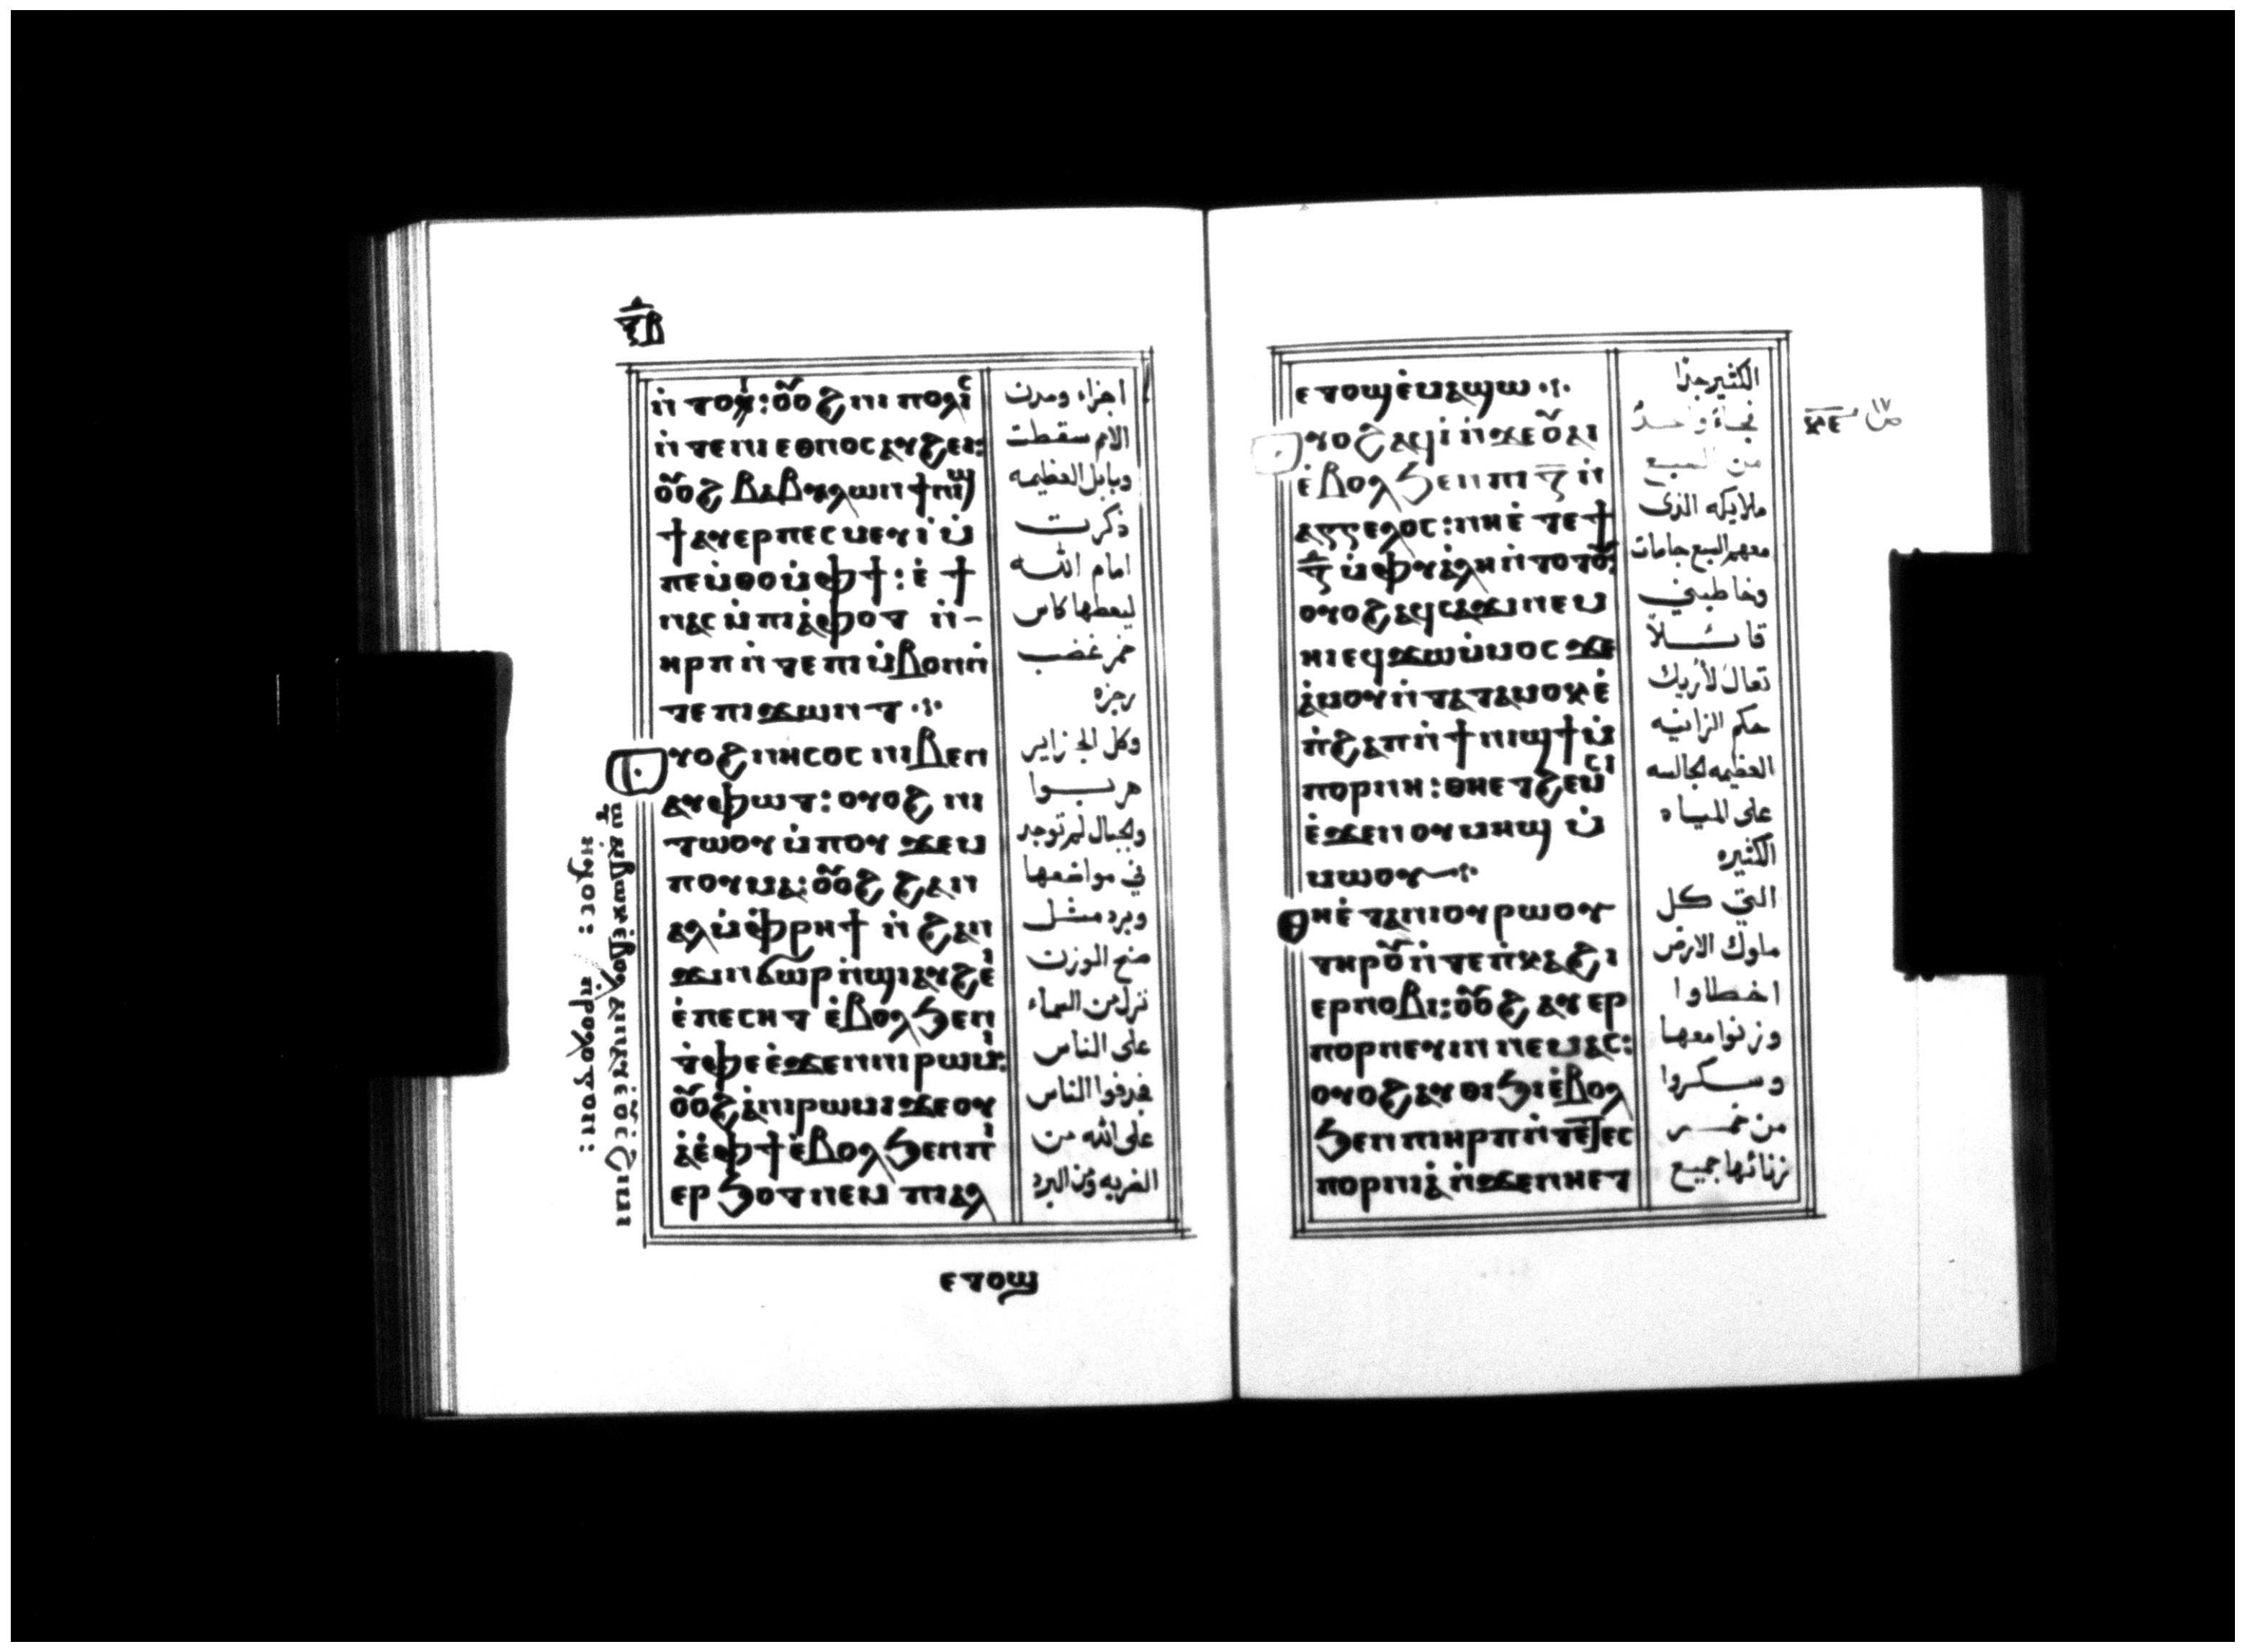 ⲝ̅ⲃ
ⲛ̀ⲧⲟⲓ: ⲟⲩⲟϩ ⲛⲓⲡⲟⲗⲓⲥ
ⲛ̀ⲧⲉⲛⲓⲉⲑⲛⲟⲥ ⲁⲩϩⲉⲓ:
ⲟⲩⲟϩ ⲃⲁⲃⲩⲗⲱⲛϯⲛⲓϣ
ϯⲁⲩⲉⲣⲡⲉⲥⲙⲉⲩⲓ̀ ⲙ̀
ⲡⲉⲙ̀ⲑⲟⲙ̀ⲫϯ: ⲉ̀ϯ
ⲛⲁⲥ ⲙ̀ⲡⲓⲁ̀ⲫⲟⲧ ⲛ̀-
ⲏⲣⲡ ⲛ̀ⲧⲉⲡⲓⲙ̀ⲃⲟⲛ ⲛ̀
ⲧⲉⲡⲓϫⲱⲛⲧ
ⲟⲩⲟϩ ⲛⲏⲥⲟⲥ ⲛⲓⲃⲉⲛ
ⲁⲩⲫⲱⲧ: ⲟⲩⲟϩ ⲛⲓ
ⲧⲱⲟⲩ ⲙ̀ⲡⲟⲩ ϫⲉⲙ
ⲡⲟⲩⲙⲁ: ⲟⲩⲟϩ ϩⲁⲛ
ⲁⲗ ⲙ̀ⲫⲣⲏϯ ⲛ̀ϩⲁⲛ
ϫⲓⲛϭⲱⲣ ⲛ̀ϣⲓ ⲁⲩϩⲓ̀
ⲉ̀ⲡⲉⲥⲏⲧ ⲉ̀ⲃⲟⲗϧⲉⲛ
ⲧ̀ⲫⲉ ⲉ̀ϫⲉⲛⲛⲓⲣⲱⲙⲓ:
ⲟⲩⲟϩ ⲁ̀ⲛⲓⲣⲱⲙⲓϫⲉⲟⲩ
ⲁ̀ ⲉ̀ⲫϯ ⲉ̀ⲃⲟⲗϧⲉⲛⲡⲓ
ⲉⲣϧⲟⲧ ⲛⲉⲙ ⲡⲓⲁⲗ
ⲉⲧⲟϣ
اجزاء ومدن
الامم سقطت
وبابل العظيمه
ذكرت
امام الله
ليعطها كاس
خمر غضب
رجزه
وكل الجزاير
هربوا
والجبال لم توجد
في مواضعها
وبرد مثل
صنج الوزن
نزل من السماء
على الناس
فجدفوا الناس
على الله من
الضربه ومن البرد
ⲉⲧⲟϣⲉ̀ⲙⲁϣⲱ
ⲟⲩⲟϩ ⲁϥⲓ̀ ⲛ̀ϫⲉⲟⲩⲁⲓ
ⲉ̀ⲃⲟⲗϧⲉⲛⲡⲓⲍ̅ ⲛ̀
ⲁⲅⲅⲉⲗⲟⲥ: ⲛⲏⲉ̀ⲧⲉϯ
ⲍ̅ ⲙ̀ⲫⲩⲁⲗⲏ ⲛ̀ⲧⲟⲧⲟⲩ:
ⲟⲩⲟϩ ⲁϥⲥⲁϫⲓⲛⲉⲙ
ⲏⲓ ⲉϥϫⲱⲙ̀ⲙⲟⲥ ϫⲉ
ⲁ̀ⲙⲟⲩ ⲛ̀ⲧⲁⲧⲁⲙⲟⲕ ⲉ̀
ⲡ̀ϩⲁⲡ ⲛ̀ϯⲛⲓϣϯ ⲙ̀
ⲡⲟⲣⲛⲏ: ⲑⲏⲉⲧϩⲉⲙⲥⲓ
ⲉ̀ϫⲉⲛⲟⲩⲙⲏϣ ⲙ̀
ⲙⲱⲟⲩ
ⲑⲏⲉ̀ⲧⲁⲛⲓⲟⲩⲣⲱⲟⲩ
ⲧⲏⲣⲟⲩ ⲛ̀ⲧⲉⲡ̀ⲕⲁϩⲓ
ⲉⲣⲛⲟⲃⲓ: ⲟⲩⲟϩ ⲁⲩⲉⲣ
ⲡⲟⲣⲛⲉⲩⲓⲛ ⲛⲉⲙⲁⲥ:
ⲟⲩⲟϩ ⲁⲩⲑⲓϧⲓ ⲉ̀ⲃⲟⲗ
ϧⲉⲛ ⲡⲓⲏⲣⲡ ⲛ̀ⲧⲉⲧⲉⲥ
ⲡⲟⲣⲛⲓⲁ̀ ⲛ̀ϫⲉⲛⲏⲉⲧ
الكثير جدا
فجاءَ واحدٌ
من السبع
ملايكه الذى
معهم السبع جامات
وخاطبني
قائلاً
تعالَ لأريك
حكم الزانيه
العظيمه الجالسه
على المياه
الكثيره
التي كل
ملوك الارض
اخطاوا
وزنوا معها
وسكروا
من خمر
زنائها جميع